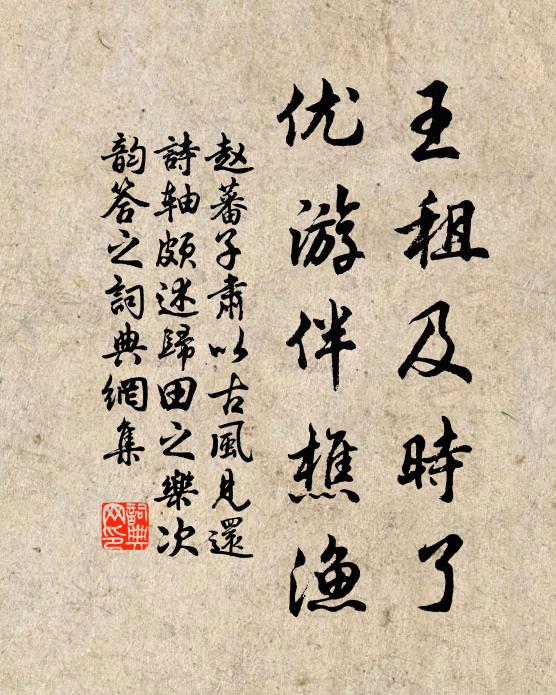 王租及時了
优游伴樵渔
赵蕃子肅以古風見還
詩軸頗述歸田之樂次
韵答之詞典網集
詞典
网印